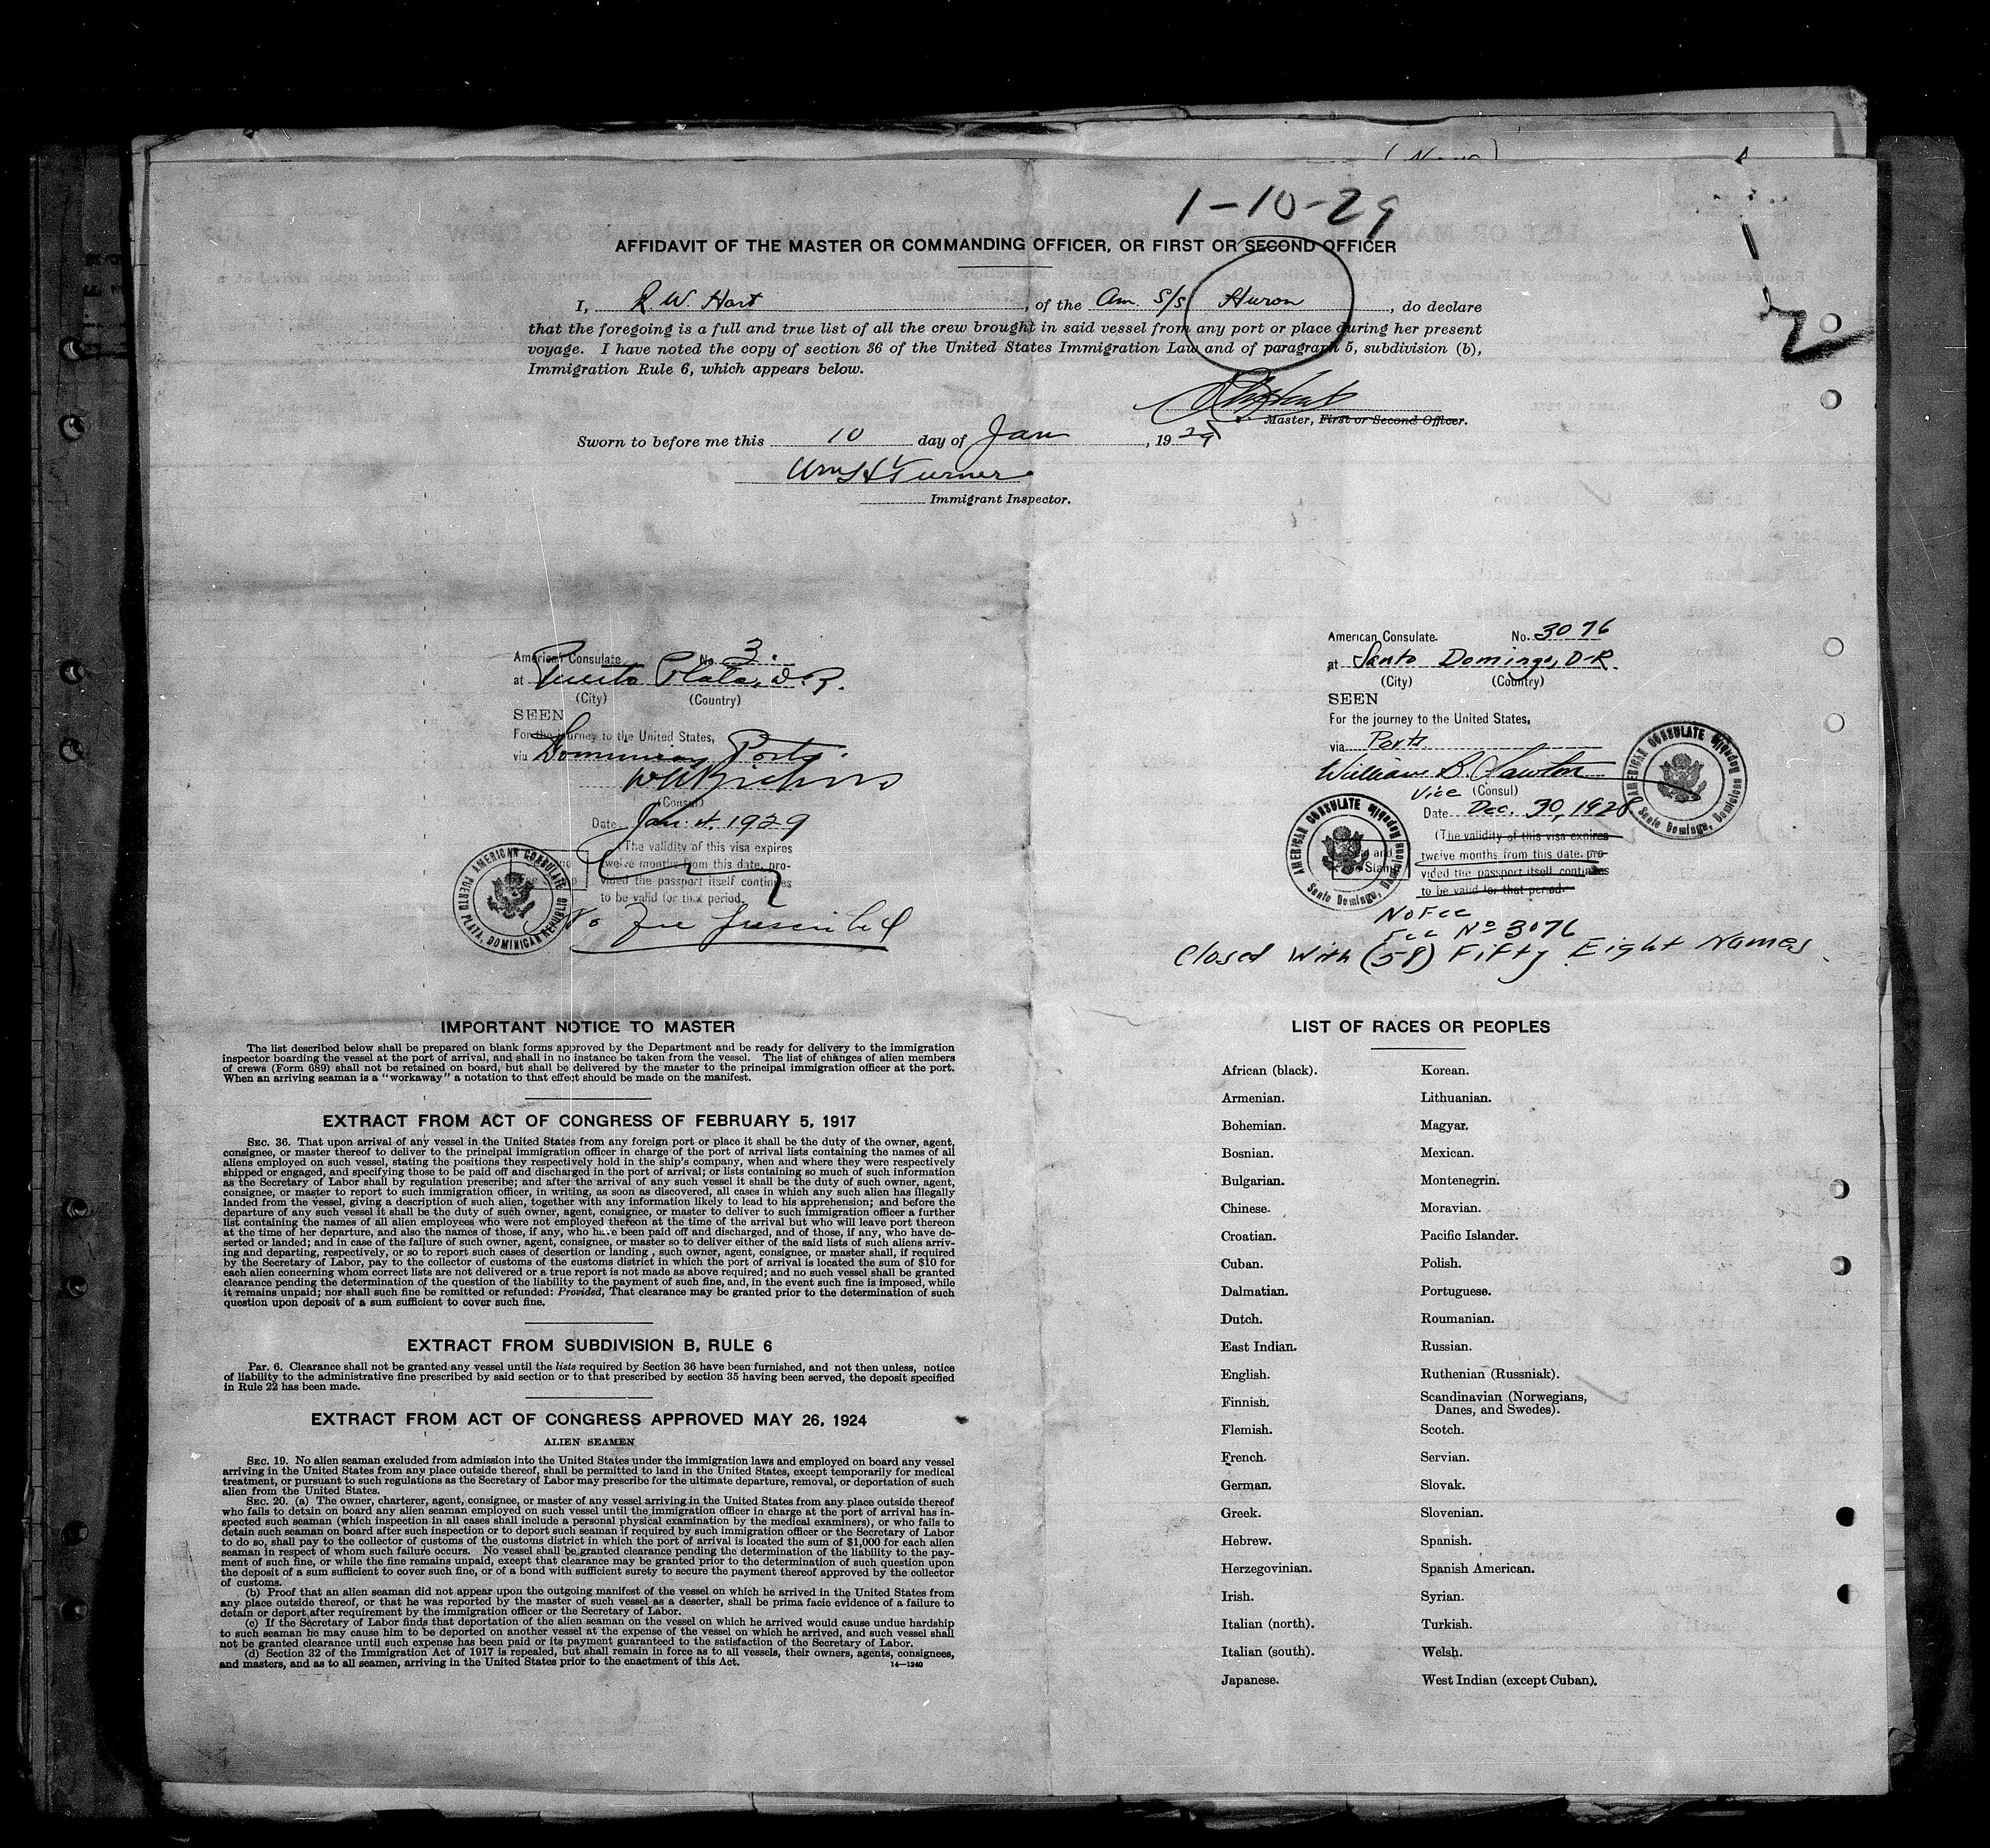 1-10-29
AFFIDAVIT OF THE MASTER OR COMMANDING OFFICER, OR FIRST OR SECOND OFFICER
I, R. W. Hart, of the Am. S/S Huron, do declare
that the foregoing is a full and true list of all the crew brought in said vessel from any port or place during her present
voyage. I have noted the copy of section 36 of the United States Immigration Law and of paragraph 5, subdivision (b),
Immigration Rule 6, which appears below.
Master, First or Second Officer.
Sworn to before me this 10 day of Jan, 1929
Wm H Turner
Immigrant Inspector.
American Consulate No. 3.
at Puerto Plata, D.R.
(City) (Country)
SEEN
For the journey to the United States,
via Dominican Ports.
(Consul)
Date Jan. 4. 1929
(The validity of this visa expires
twelve months from this date, pro-
vided the passport itself continues
to be valid for that period.
AMERICAN CONSULATE
PUERTO PLATA, DOMINICAN REPUBLIC
No Fee Prescribed
American Consulate. No. 3076
at Santo Domingo, D.R.
(City) (Country)
SEEN
For the journey to the United States,
via Ports
William B. Lawton
Vice (Consul)
Date Dec. 30, 1928
(The validity of this visa expires
twelve months from this date, pro-
vided the passport itself continues
to be valid for that period.
AMERICAN CONSULATE
Santo Domingo, Dominican Republic
AMERICAN CONSULATE
Santo Domingo, Dominican Republic
No Fee
Fee No 3076
Closed With (58) Fifty Eight Names
IMPORTANT NOTICE TO MASTER
The list described below shall be prepared on blank forms approved by the Department and be ready for delivery to the immigration
inspector boarding the vessel at the port of arrival, and shall in no instance be taken from the vessel. The list of changes of alien members
of crews (Form 689) shall not be retained on board, but shall be delivered by the master to the principal immigration officer at the port.
When an arriving seaman is a "workaway" a notation to that effect should be made on the manifest.
EXTRACT FROM ACT OF CONGRESS OF FEBRUARY 5, 1917
SEC. 36. That upon arrival of any vessel in the United States from any foreign port or place it shall be the duty of the owner, agent,
consignee, or master thereof to deliver to the principal immigration officer in charge of the port of arrival lists containing the names of all
aliens employed on such vessel, stating the positions they respectively hold in the ship's company, when and where they were respectively
shipped or engaged, and specifying those to be paid off and discharged in the port of arrival; or lists containing so much of such information
as the Secretary of Labor shall by regulation prescribe; and after the arrival of any such vessel it shall be the duty of such owner, agent,
consignee, or master to report to such immigration officer, in writing, as soon as discovered, all cases in which any such alien has illegally
landed from the vessel, giving a description of such alien, together with any information likely to lead to his apprehension; and before the
departure of any such vessel it shall be the duty of such owner, agent, consignee, or master to deliver to such immigration officer a further
list containing the names of all alien employees who were not employed thereon at the time of the arrival but who will leave port thereon
at the time of her departure, and also the names of those, if any, who have been paid off and discharged, and of those, if any, who have de-
serted or landed; and in case of the failure of such owner, agent, consignee, or master so to deliver either of the said lists of such aliens arriv-
ing and departing, respectively, or so to report such cases of desertion or landing , such owner, agent, consignee, or master shall, if required
by the Secretary of Labor, pay to the collector of customs of the customs district in which the port of arrival is located the sum of $10 for
each alien concerning whom correct lists are not delivered or a true report is not made as above required; and no such vessel shall be granted
clearance pending the determination of the question of the liability to the payment of such fine, and, in the event such fine is imposed, while
it remains unpaid; nor shall such fine be remitted or refunded: Provided, That clearance may be granted prior to the determination of such
question upon deposit of a sum sufficient to cover such fine.
EXTRACT FROM SUBDIVISION B, RULE 6
Par. 6. Clearance shall not be granted any vessel until the lists required by Section 36 have been furnished, and not then unless, notice
of liability to the administrative fine prescribed by said section or to that prescribed by section 35 having been served, the deposit specified
in Rule 22 has been made.
EXTRACT FROM ACT OF CONGRESS APPROVED MAY 26, 1924
ALIEN SEAMEN
SEC. 19. No alien seaman excluded from admission into the United States under the immigration laws and employed on board any vessel
arriving in the United States from any place outside thereof, shall be permitted to land in the United States, except temporarily for medical
treatment, or pursuant to such regulations as the Secretary of Labor may prescribe for the ultimate departure, removal, or deportation of such
alien from the United States.
SEC. 20. (a) The owner, charterer, agent, consignee, or master of any vessel arriving in the United States from any place outside thereof
who fails to detain on board any alien seaman employed on such vessel until the immigration officer in charge at the port of arrival has in-
spected such seaman (which inspection in all cases shall include a personal physical examination by the medical examiners), or who fails to
detain such seaman on board after such inspection or to deport such seaman if required by such immigration officer or the Secretary of Labor
to do so, shall pay to the collector of customs of the customs district in which the port of arrival is located the sum of $1,000 for each alien
seaman in respect of whom such failure occurs. No vessel shall be granted clearance pending the determination of the liability to the pay-
ment of such fine, or while the fine remains unpaid, except that clearance may be granted prior to the determination of such question upon
the deposit of a sum sufficient to cover such fine, or of a bond with sufficient surety to secure the payment thereof approved by the collector
of customs.
(b) Proof that an alien seaman did not appear upon the outgoing manifest of the vessel on which he arrived in the United States from
any place outside thereof, or that he was reported by the master of such vessel as a deserter, shall be prima facie evidence of a failure to
detain or deport after requirement by the immigration officer or the Secretary of Labor.
(c) If the Secretary of Labor finds that deportation of the alien seaman on the vessel on which he arrived would cause undue hardship
to such seaman he may cause him to be deported on another vessel at the expense of the vessel on which he arrived, and such vessel shall
not be granted clearance until such expense has been paid or its payment guaranteed to the satisfaction of the Secretary of Labor.
(d) Section 32 of the Immigration Act of 1917 is repealed, but shall remain in force as to all vessels, their owners, agents, consignees,
and masters, and as to all seamen, arriving in the United States prior to the enactment of this Act.
14—1240
LIST OF RACES OR PEOPLES
African (black).
Armenian.
Bohemian.
Bosnian.
Bulgarian.
Chinese.
Croatian.
Cuban.
Dalmatian.
Dutch.
East Indian.
English.
Finnish.
Flemish.
French.
German.
Greek.
Hebrew.
Herzegovinian.
Irish.
Italian (north).
Italian (south).
Japanese.
Korean.
Lithuanian.
Magyar.
Mexican.
Montenegrin.
Moravian.
Pacific Islander.
Polish.
Portuguese.
Roumanian.
Russian.
Ruthenian (Russniak).
Scandinavian (Norwegians,
Danes, and Swedes).
Scotch.
Servian.
Slovak.
Slovenian.
Spanish.
Spanish American.
Syrian.
Turkish.
Welsh.
West Indian (except Cuban).